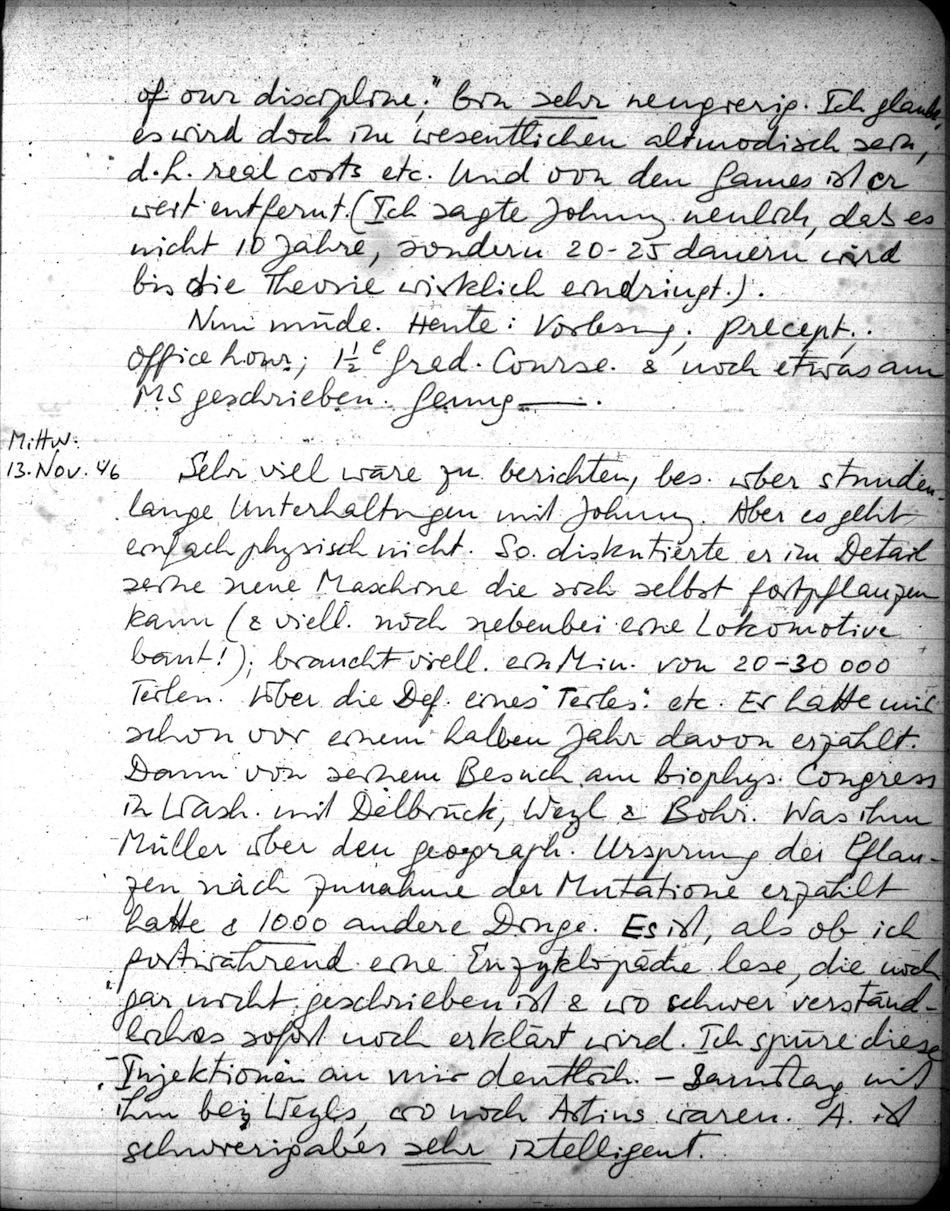 of our discipline." bin sehr neugierig. Ich glaub,
es wird doch im wesentlichen altmodisch sein,
d.h. real costs etc. Und von den Games ist er
weit entfernt. (Ich sagte Johnny neulich, dass es
nicht 10 Jahre, sondern 20-25 dauern wird
bis die Theorie wirklich eindringt.).
Nun müde. Heute: Vorlesung; precept.;
office hour; 1½ Grad. Course. & noch etwas am
MS geschrieben. Genug —.
Mittw.
13. Nov. 46
Sehr viel wäre zu berichten, bes. über stunden-
lange Unterhaltungen mit Johnny. Aber es geht
einfach physisch nicht. So diskutierte er im Detail
seine neue Maschine die sich selbst fortpflanzen
kann (& viell. noch nebenbei eine Lokomotive
baut!); braucht viell. ein Min. von 20-30 000
Teilen. Über die Def. eines "Teiles" etc. Er hatte mir
schon vor einem halben Jahr davon erzählt.
Dann von seinem Besuch am biophys. Congress
in Wash. mit Delbrück, Weyl & Bohr. Was ihm
Müller über den geograph. Ursprung der Pflan-
zen nach Zunahme der Mutatione erzählt
hatte & 1000 andere Dinge. Es ist, als ob ich
fortwährend eine Enzyklopädie lese, die noch
gar nicht geschrieben ist & wo schwer verständ-
liches sofort noch erklärt wird. Ich spüre diese
Injektionen an mir deutlich. – Samstag mit
ihm bei Weyls, wo noch Artins waren. A. ist
schwierig aber sehr intelligent.